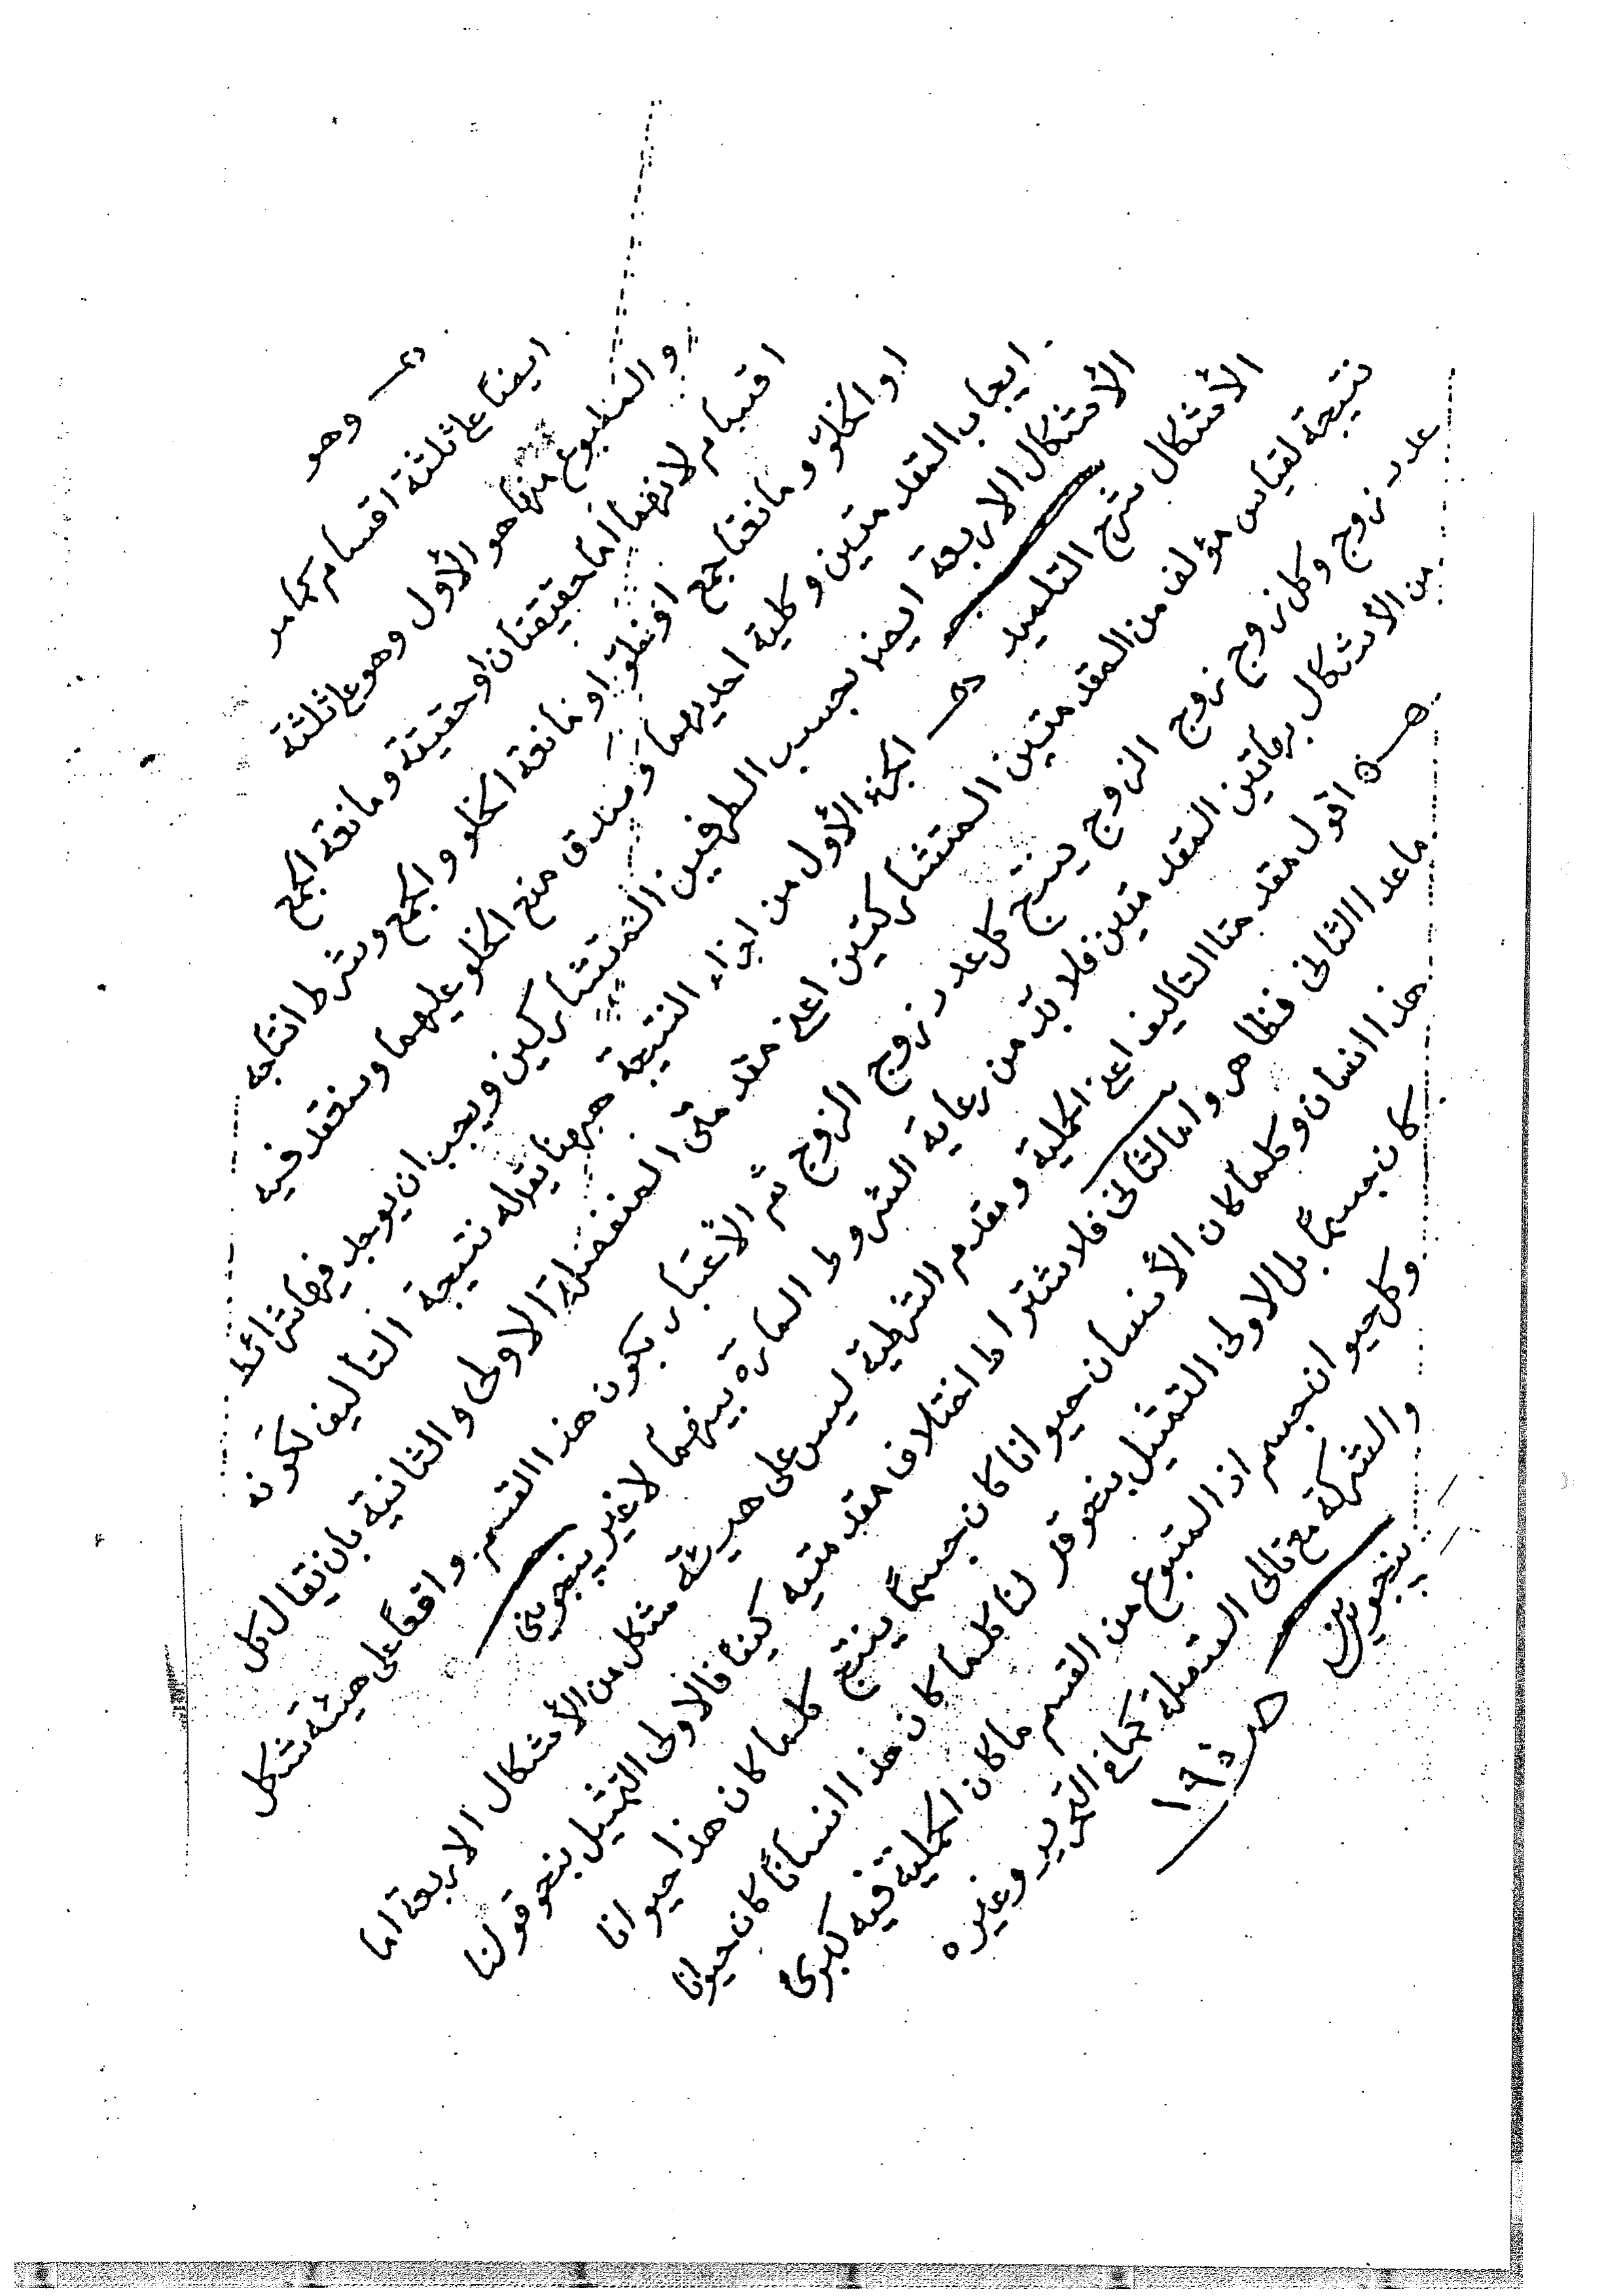 دعـ وهو
ايضًا ع ثلثة اقسام كما مر
والمطبوع منها هو الأول وهو ع ثلثة
اقسام لانهما اما حقيقتان او حقيقة ومانعة الجمع
او الخلو ومانعتا جمع او خلو او مانعة الخلو والجمع وشرط انتاجه
ايجاب المقدمتين وكلية احديهما وصدق منع الخلو عليهما وينعقد فيه
الأشكال الاربعة ايضا بحسب الطرفين المتشاركين ويجب ان يوجد فيها شرائط
الأشكال شرح التلميد الجزء الأول من اجزاء النتيجة ههنا نتيجة التأليف لكونه
نتيجة لقياس مؤلف من المقدمتين المتشاركتين اعنى مقدمتى المنفصلة الاولى والثانية بان يقال كل
عدد زوج وكل زوج زوج الزوج ينتج كل عدد زوج الزوج ثم الأعتبار بكون هذا القسم واقعًا على هيئة شكل
من الأشكال المقدمتين فلا بد من رعاية الشروط المارة بينهما لا غير پنجوينى
اقول مقدمتا التاليف اعنى الحملية ومقدم الشرطية ليس على هيئة شكل من الأشكال الاربعة اما
ما عدا الثانى فظاهر واما الثانى فلاشتراط اختلاف مقدمتيه كيفًا فالاولى التمثيل بنحو قولنا
هذا انسان وكلما كان الأنسان حيوانا كان جسمًا ينتج كلما كان هذا حيوانا
كان جسمًا بل الاولى التمثيل بنحو قولنا كلما كان هذا انسانًا كان حيوانا
وكل حيوان جسم اذ المتبوع من القسم ما كان الحملية فيه كبرى
والشركة مع تالى المتصلة كما فى التحرير وغيره
پنجوينى صـ ١٩٥